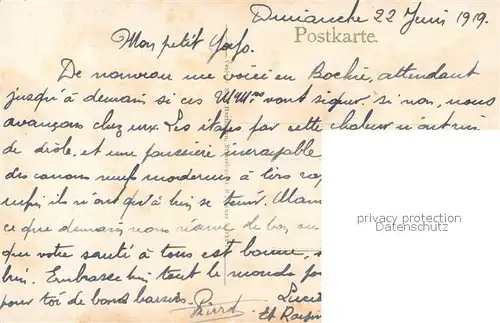 Dimanche 22 Juin 1919.
Postkarte.
Mon petit
De nouveau une voici en Bochie, attendant
jusqu'à demain si ces vont signer. si non, nous
avançons chez eux. Les étapes par cette chaleur n'ont rien
de drôle, et une poussière incroyable
des canons neufs modernes à tirs
enfin ils n'ont qu'à bien se tenir.
ce que demain nous réserve de bon, ou
que votre santé à tous est bonne,
bien. Embrasse bien tout le monde
pour toi de bons baisers. Pierrot
Et
privacy protection
Datenschutz